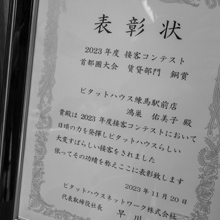 表彰状
2023年度 接客コンテスト
首都圏大会 賃貸部門 銅賞
ピタットハウス練馬駅前店
鴻巣 佑美子 殿
貴殿は2023年度接客コンテストにおいて
日頃の力を発揮しピタットハウスらしい
大変すばらしい接客をされました
依ってその功績を称えここに表彰します
2023年11月20日
ピタットハウスネットワーク株式会社
代表取締役社長 早川